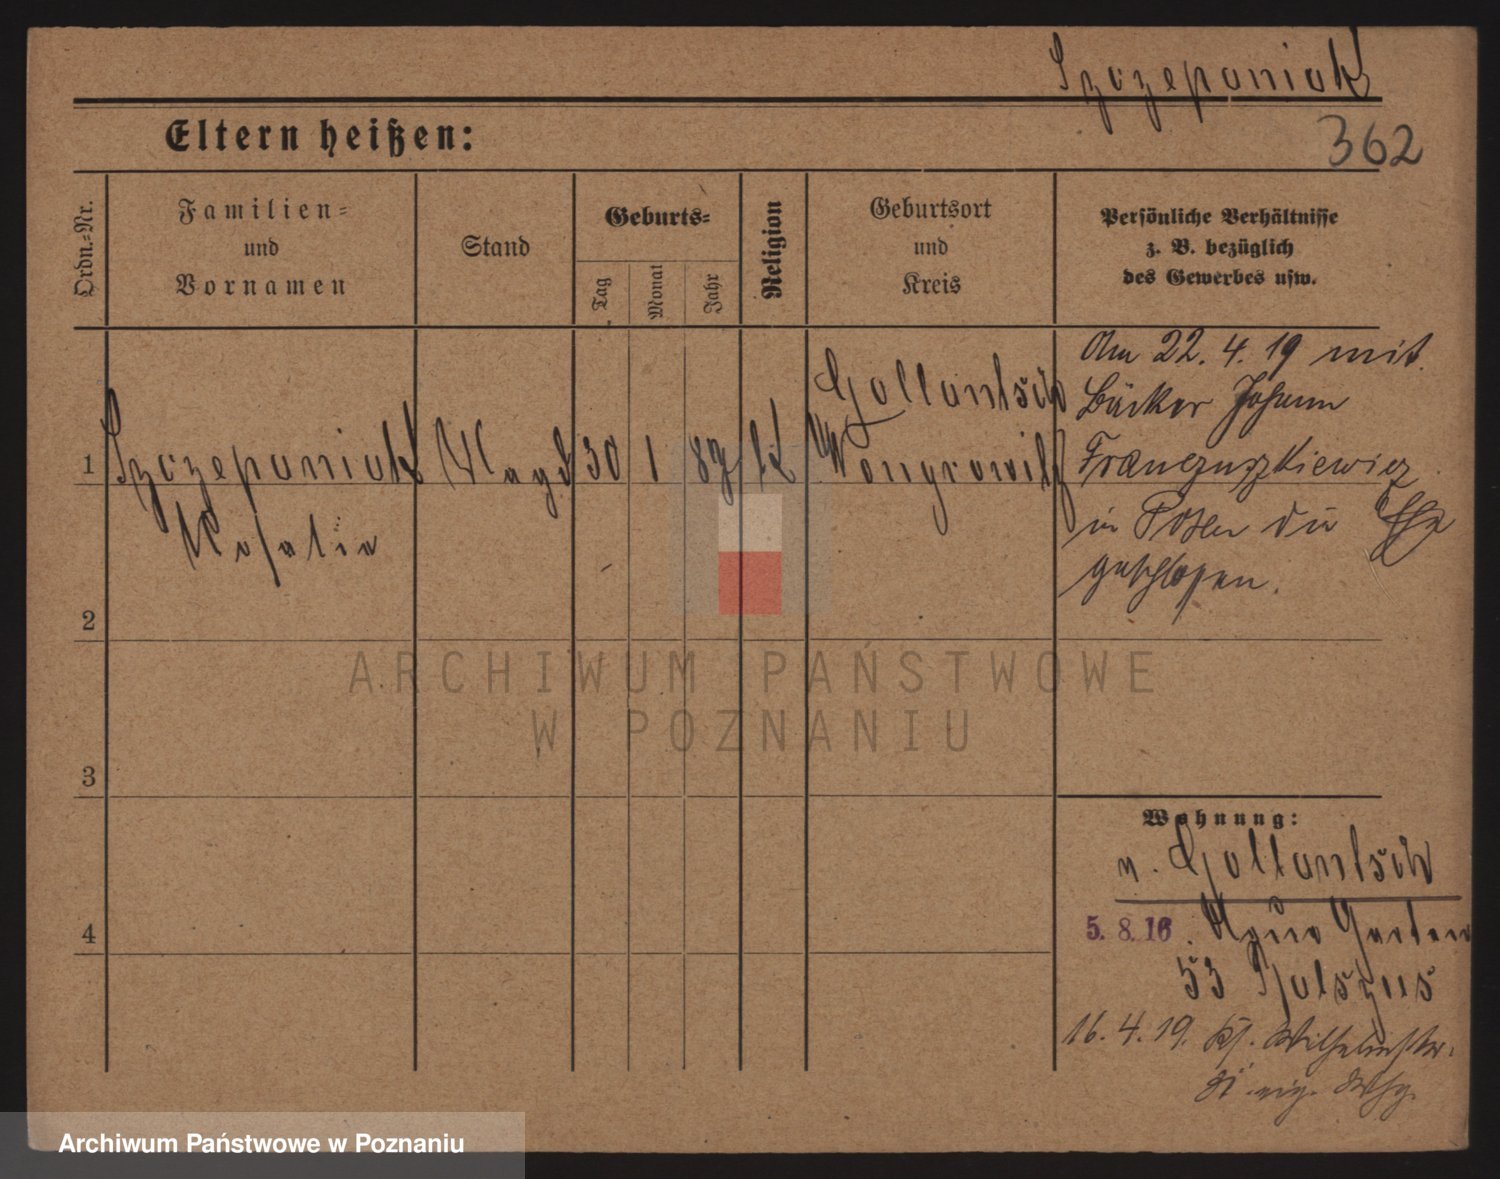 Szczepaniak
362
Eltern heißen:
Ordn.-Nr.
Familien-
und
Vornamen
Stand
Geburts-
Tag
Monat
Jahr
Religion
Geburtsort
und
Kreis
Persönliche Verhältnisse
z. B. bezüglich
des Gewerbes usw.
1 Szczepaniak Magd 30 1 87 k Gollantsch
Wongrowitz
Rosalie
Am 22. 4. 19 mit
Bäcker Johann
Franczuszkiewicz
in Posen die Ehe
geschlossen.
2
3
4
Wohnung:
v. Gollantsch
5. 8. 16 Neue Garten
53
16. 4. 19. Wilhelmstr.
eig. Whg.
ARCHIWUM PAŃSTWOWE
W POZNANIU
Archiwum Państwowe w Poznaniu